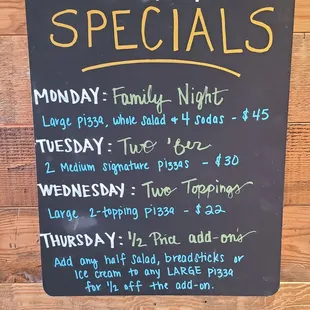 SPECIALS
MONDAY: Family Night
Large pizza, whole salad & 4 sodas - $45
TUESDAY: Two 'fer
2 Medium signature pizzas - $30
WEDNESDAY: Two Toppings
Large 2-topping pizza - $22
THURSDAY: 1/2 Price add-ons
Add any half salad, breadsticks or
Ice cream to any LARGE pizza
for 1/2 off the add-on.